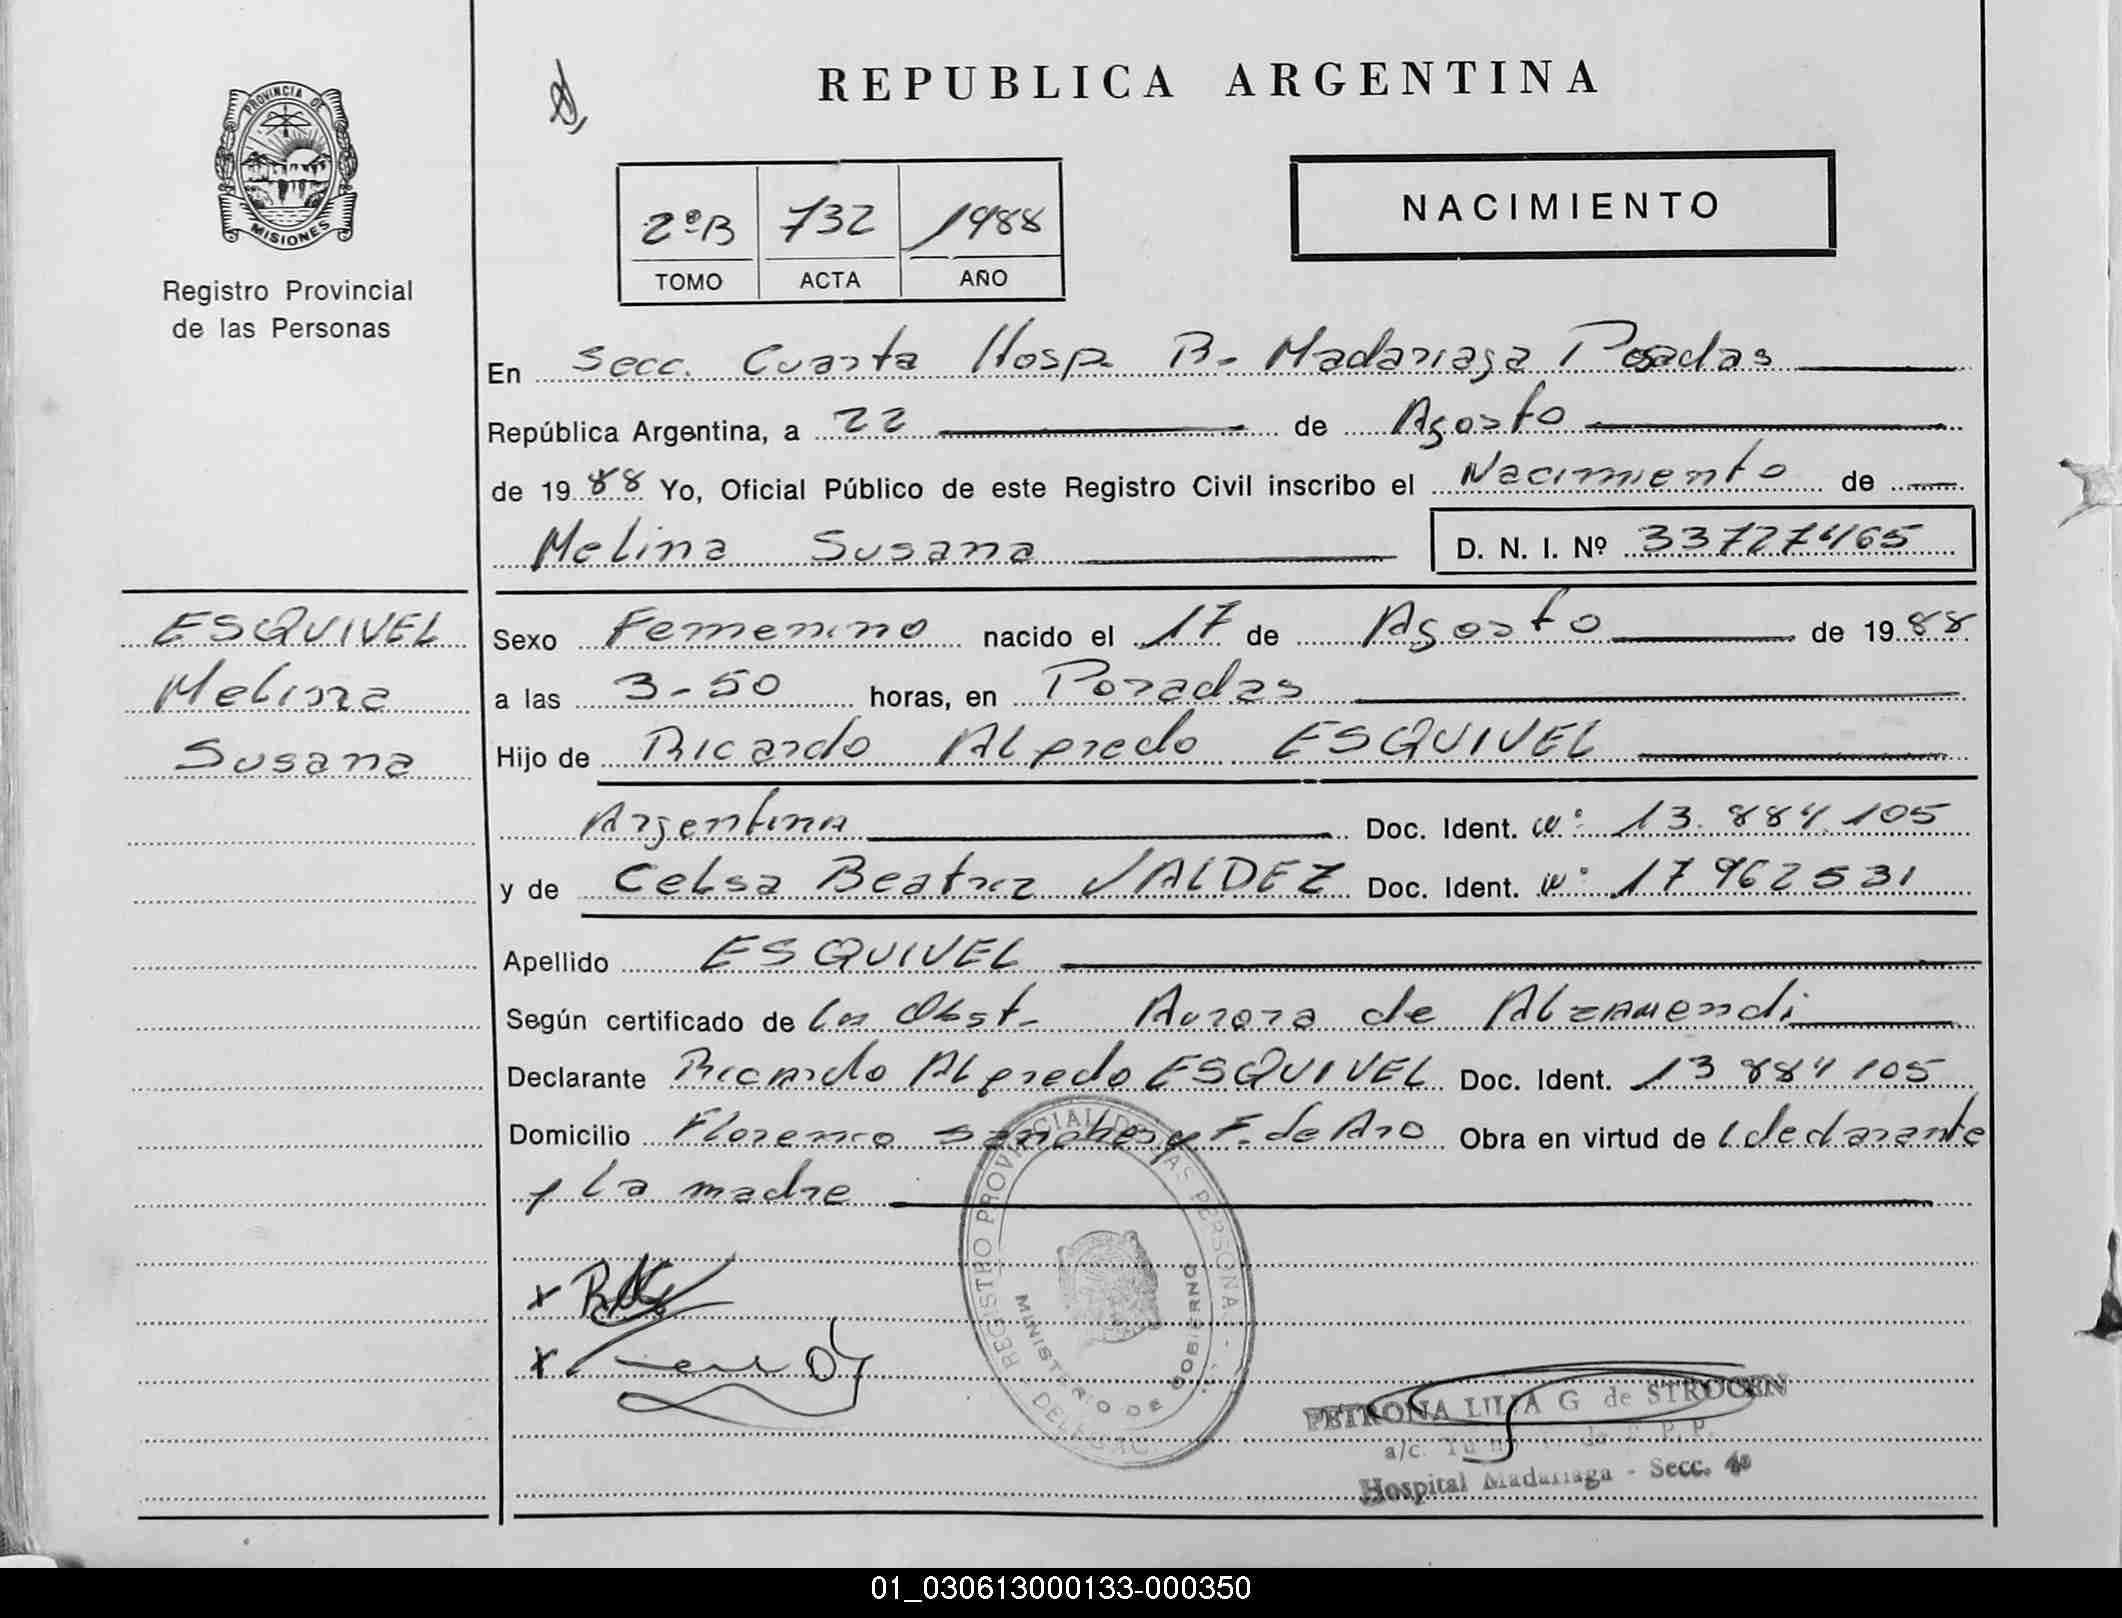 REPUBLICA ARGENTINA
PROVINCIA DE
MISIONES
Registro Provincial
de las Personas
2º B 732 1988
TOMO ACTA AÑO
NACIMIENTO
En Secc. Cuarta Hosp. R. Madariaga Posadas
República Argentina, a 22 de Agosto
de 1988 Yo, Oficial Público de este Registro Civil inscribo el Nacimiento de
Melina Susana D. N. I. Nº 33727465
ESQUIVEL
Melina
Susana
Sexo Femenino nacido el 17 de Agosto de 1988
a las 3-50 horas, en Posadas
Hijo de Ricardo Alfredo ESQUIVEL
Argentina Doc. Ident. Nº 13.884.105
y de Celsa Beatriz VALDEZ Doc. Ident. Nº 17962531
Apellido ESQUIVEL
Según certificado de la Obst. Aurora de Alzamendi
Declarante Ricardo Alfredo ESQUIVEL Doc. Ident. 13 884 105
Domicilio Florencio Sanchez y F. de Aro Obra en virtud de l declarante
y la madre
REGISTRO PROVINCIAL DE LAS PERSONAS
MINISTERIO DE GOBIERNO
PETRONA LILIA G de STROGEN
a/c.
Hospital Madariaga - Secc. 4a
01_030613000133-000350